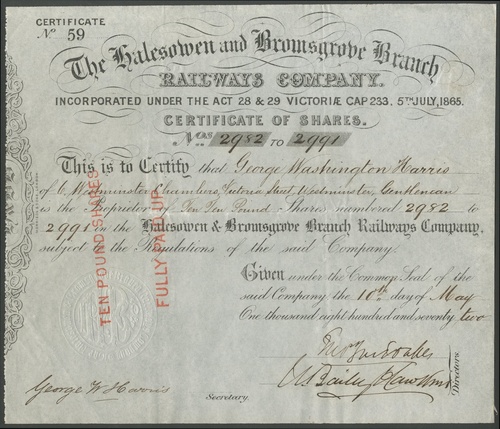 CERTIFICATE
No 59
The Halesowen and Bromsgrove Branch
RAILWAYS COMPANY.
INCORPORATED UNDER THE ACT 28 & 29 VICTORIÆ CAP 233. 5TH JULY, 1865.
CERTIFICATE OF SHARES.
Nos 2982 TO 2991
This is to Certify that George Washington Harris
of 6, Westminster Chambers, Victoria Street Westminster, Gentleman
is the Proprietor of Ten Ten Pound Shares numbered 2982 to
2991 in the Halesowen & Bromsgrove Branch Railways Company,
subject to the Regulations of the said Company.
Given under the Common Seal of the
said Company, the 10th day of May
One thousand eight hundred and seventy two
TEN POUND SHARES
FULLY PAID UP
George W Harris
Secretary.
Directors